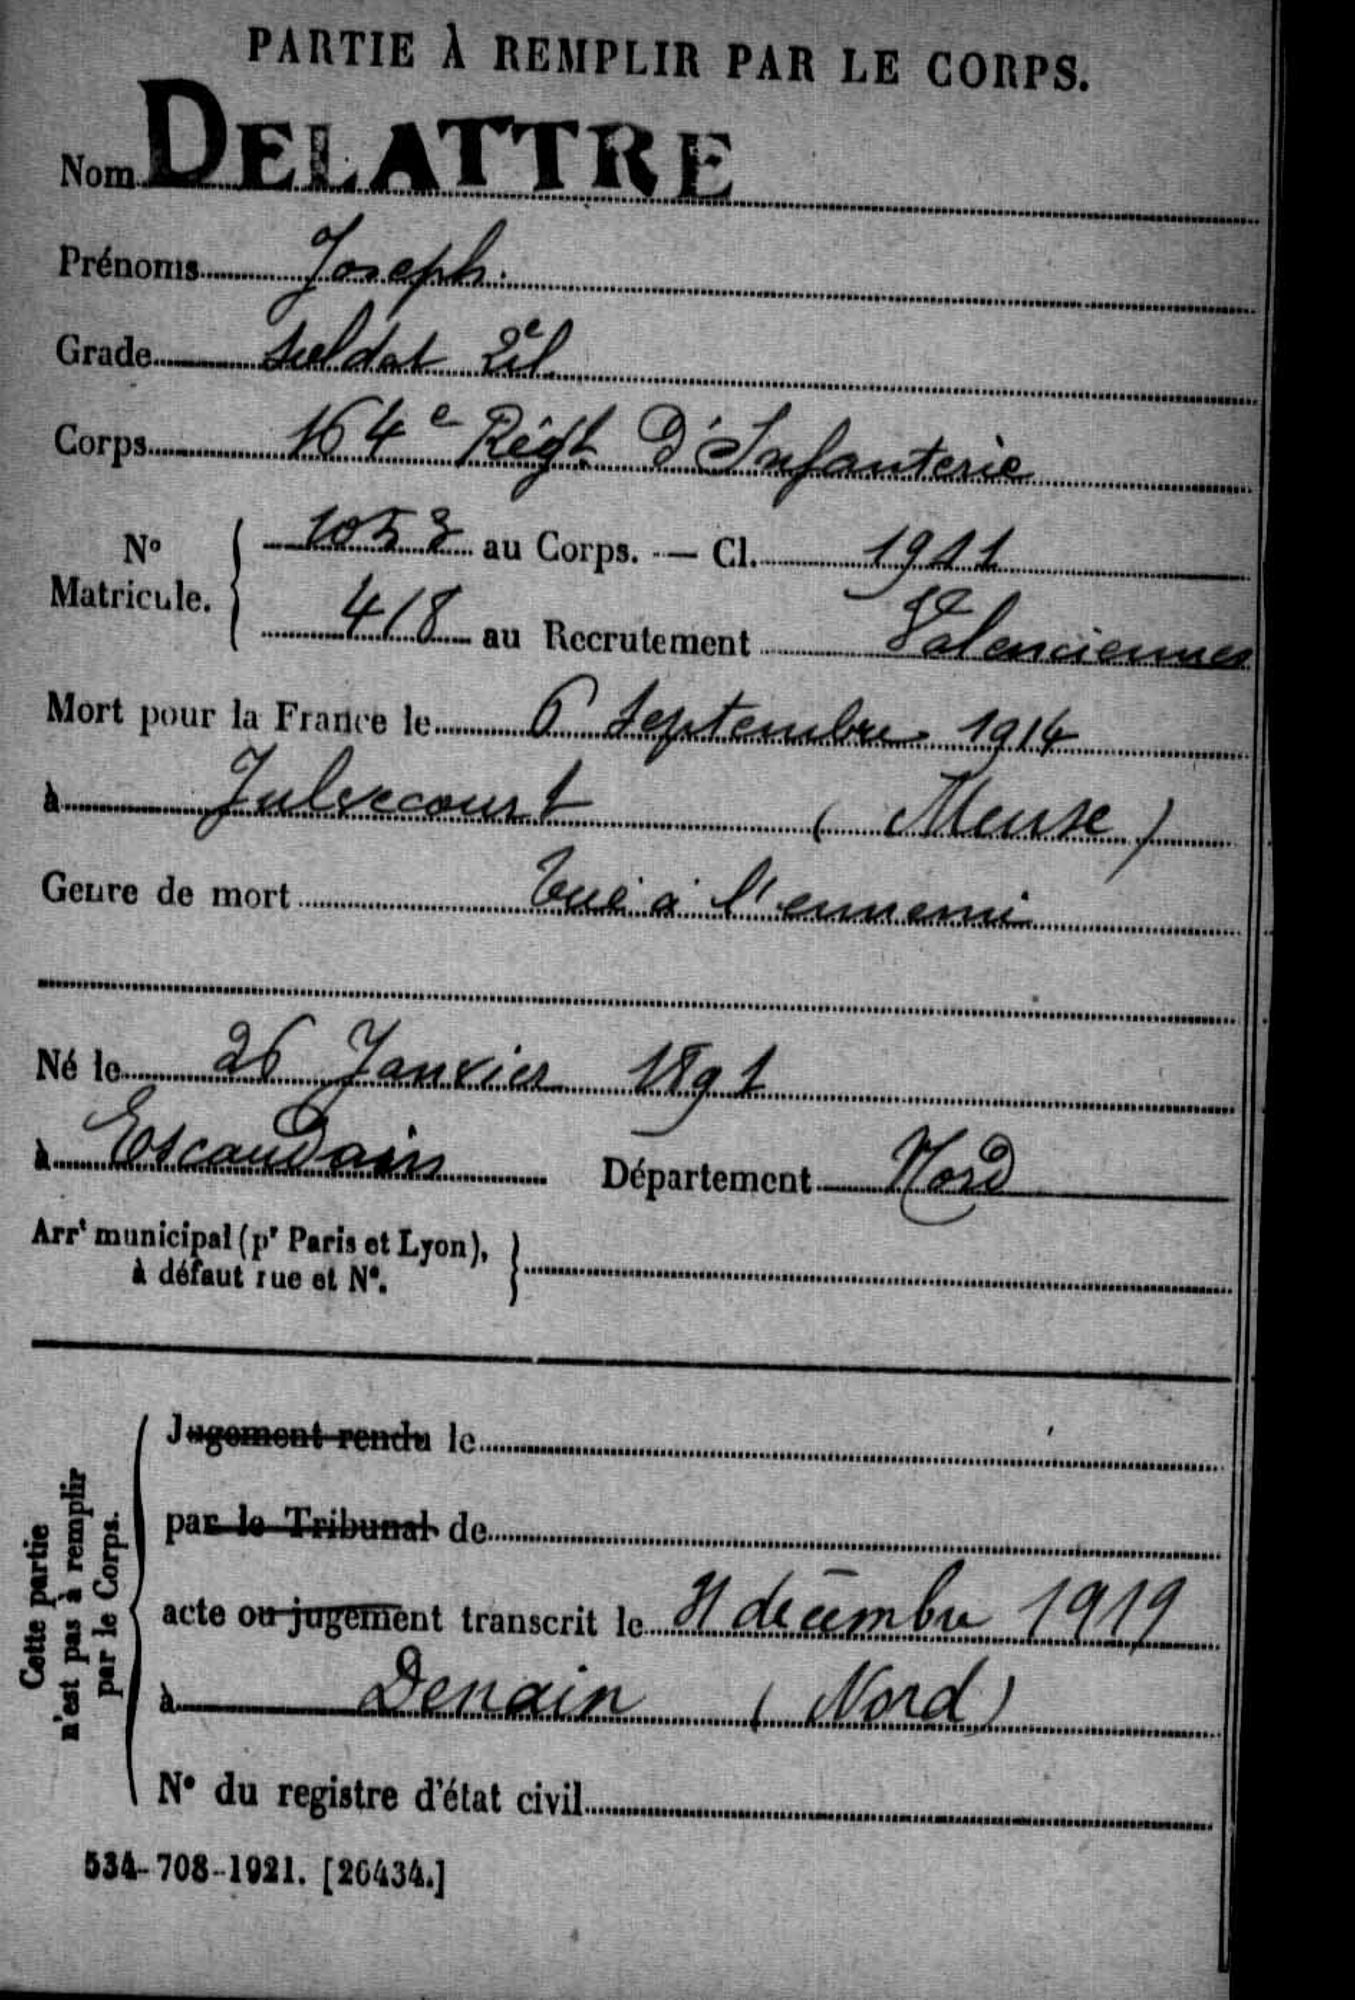 PARTIE À REMPLIR PAR LE CORPS.
Nom DELATTRE
Prénoms Joseph.
Grade Soldat 2e cl
Corps 164e Régt D'Infanterie
No Matricule. 1053 au Corps. — Cl. 1911
418 au Recrutement Valenciennes
Mort pour la France le 6 Septembre 1914
à Julvecourt (Meuse)
Genre de mort Tué à l'ennemi
Né le 26 Janvier 1891
à Escaudain Département Nord
Arrt municipal (pr Paris et Lyon),
à défaut rue et No.
Cette partie
n'est pas à remplir
par le Corps.
Jugement rendu le
par le Tribunal de
acte ou jugement transcrit le 31 décembre 1919
à Denain (Nord)
No du registre d'état civil
534-708-1921. [26434.]